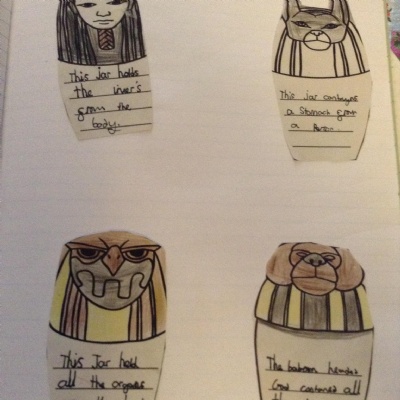 This jar holds
the liver's
from the
body.
This jar
a stomach from
a
This Jar hold
all the organs
The baboon headed
God contained all